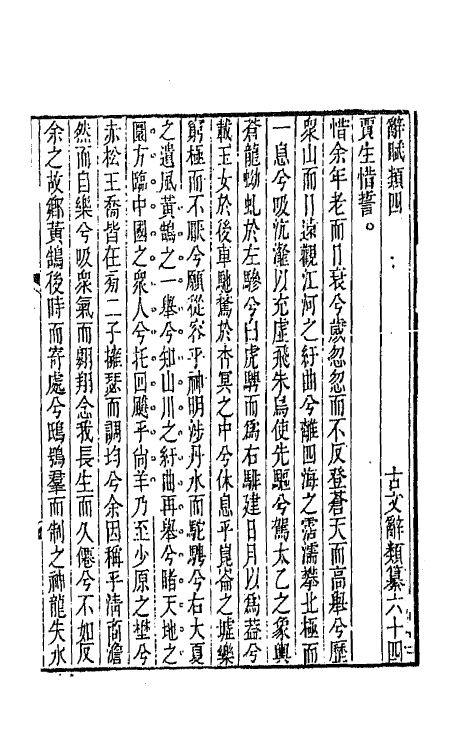 辭賦類四　古文辭類纂六十四
賈生惜誓。
惜余年老而日衰兮歲忽忽而不反登蒼天而高舉兮歷
衆山而日遠觀江河之紆曲兮離四海之霑濡攀北極而
一息兮吸沆瀣以充虛飛朱鳥使先驅兮駕太乙之象輿
蒼龍蚴虬於左驂兮白虎騁而爲右騑建日月以爲葢兮
載玉女於後車馳騖於杳冥之中兮休息乎崑崙之墟樂
窮極而不厭兮願從容乎神明涉丹水而駝騁兮右大夏
之遺風黃鵠之一舉兮知山川之紆曲再舉兮睹天地之
圜方臨中國之衆人兮托回飈乎尙羊乃至少原之壄兮
赤松王喬皆在旁二子擁瑟而調均兮余因稱乎淸商澹
然而自樂兮吸衆氣而翺翔念我長生而久僊兮不如反
余之故鄉黃鵠後時而寄處兮鴟鴞羣而制之神龍失水